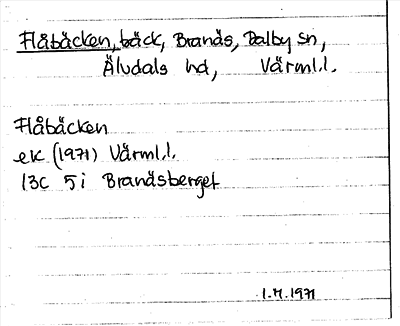 Flåbäcken, bäck, Branäs, Dalby sn,
Älvdals hd, Värml.l.
Flåbäcken
ek (1971) Värml.l.
13C 5i Branäsberget
1.7.1971